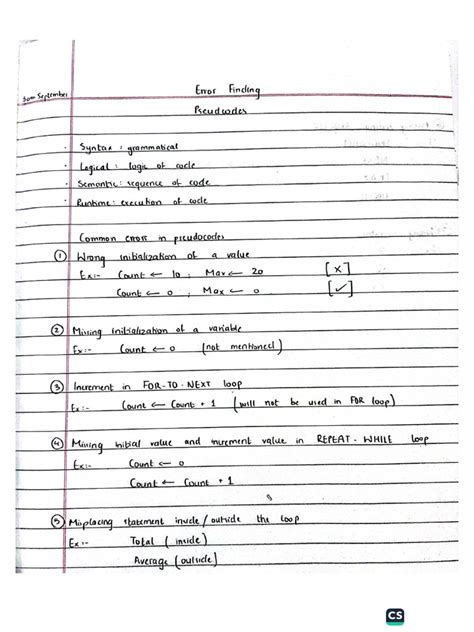 30th September
Error Finding
Pseudcodes
· Syntax : grammatical
· Logical : logic of code
· Semantic : sequence of code
· Runtime : execution of code
Common errors in pseudocodes
① Wrong initialization of a value
Ex :- Count ← 10 , Max ← 20 [ x ]
Count ← 0 , Max ← 0 [ ✓ ]
② Missing initialization of a variable
Ex :- Count ← 0 (not mentioned)
③ Increment in FOR-TO-NEXT loop
Ex :- Count ← Count + 1 (will not be used in FOR loop)
④ Missing initial value and increment value in REPEAT-WHILE loop
Ex :- Count ← 0
Count ← Count + 1
⑤ Misplacing statement inside / outside the loop
Ex :- Total (inside)
Average (outside)
CS